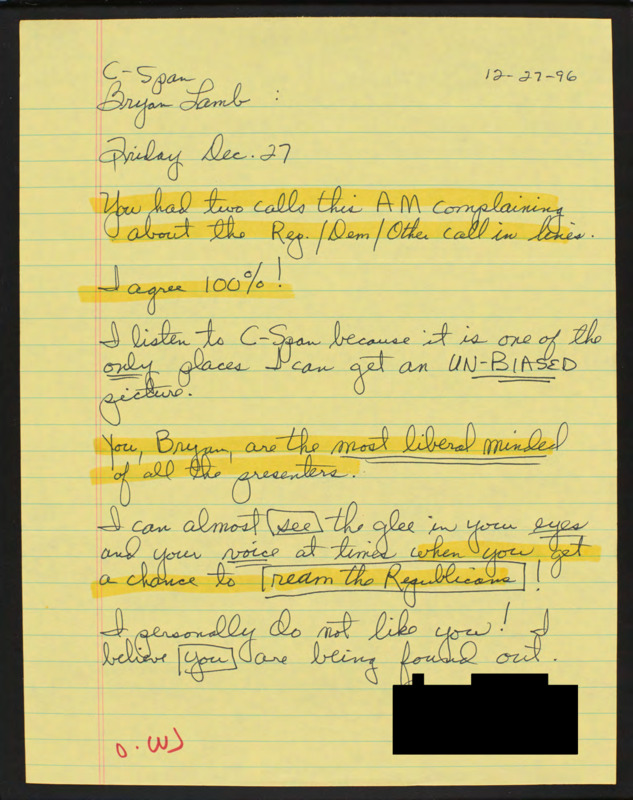 C-Span
12-27-96
Bryan Lamb :
Friday Dec. 27
You had two calls this AM complaining
about the Rep./Dem/Other call in lines.
I agree 100%!
I listen to C-Span because it is one of the
only places I can get an UN-BIASED
picture.
You, Bryan, are the most liberal minded
of all the presenters.
I can almost see the glee in your eyes
and your voice at times when you get
a chance to ream the Republicans!
I personally do not like you! I
believe you are being found out.